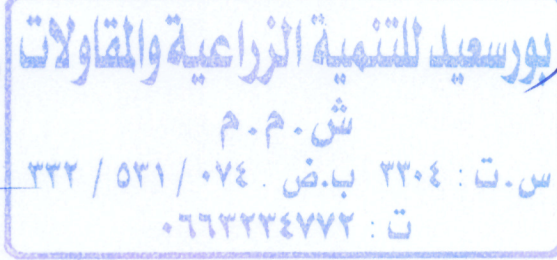 بورسعيد للتنمية الزراعية والمقاولات
ش.م.م
س.ت : ٣٣٠٤ ب.ض . ٠٧٤ / ٥٣١ / ٣٣٢
ت : ٠٦٦٣٢٣٤٧٧٢